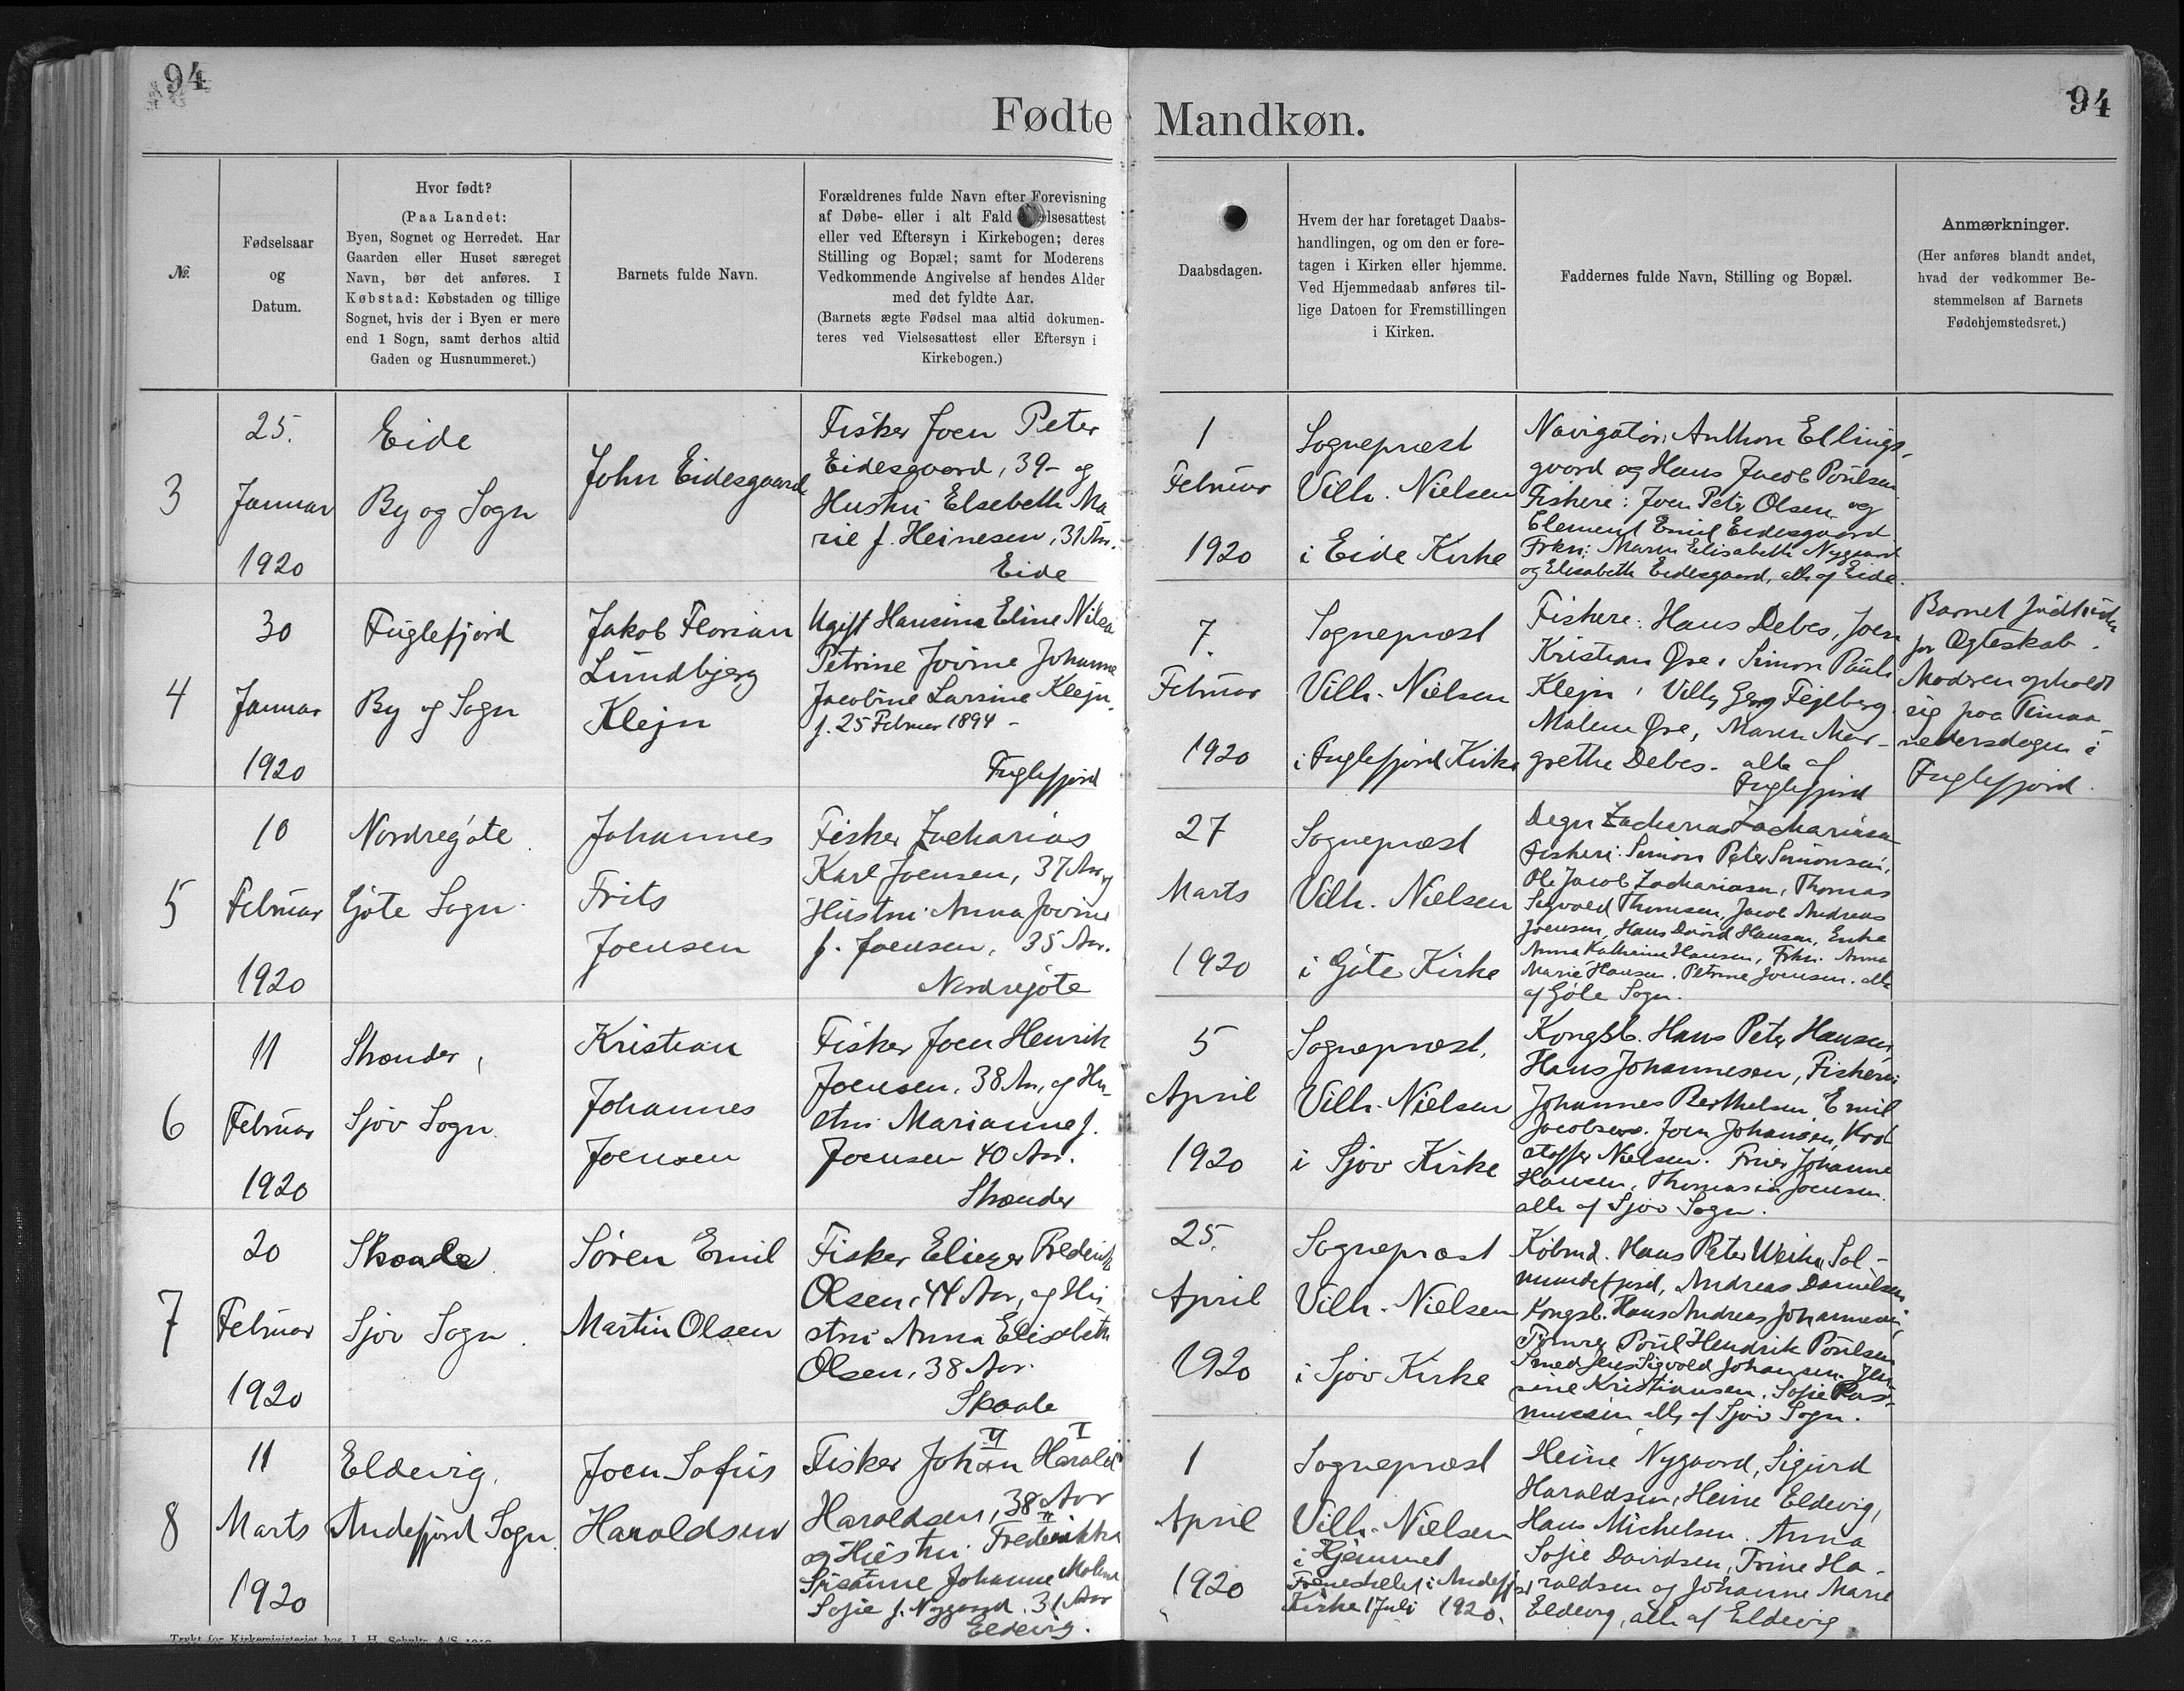 94
94
Fødte Mandkøn.
№
Fødselsaar
og
Datum.
Hvor født?
(Paa Landet:
Byen, Sognet og Herredet. Har
Gaarden eller Huset særeget
Navn, bør det anføres. I
Købstad: Købstaden og tillige
Sognet, hvis der i Byen er mere
end 1 Sogn, samt derhos altid
Gaden og Husnummeret.)
Barnets fulde Navn.
Forældrenes fulde Navn efter Forevisning
af Døbe- eller i alt Fald
eller ved Eftersyn i Kirkebogen; deres
Stilling og Bopæl; samt for Moderens
Vedkommende Angivelse af hendes Alder
med det fyldte Aar.
(Barnets ægte Fødsel maa altid dokumen-
teres ved Vielsesattest eller Eftersyn i
Kirkebogen.)
Daabsdagen.
Hvem der har foretaget Daabs-
handlingen, og om den er fore-
tagen i Kirken eller hjemme.
Ved Hjemmedaab anføres til-
lige Datoen for Fremstillingen
i Kirken.
Faddernes fulde Navn, Stilling og Bopæl.
Anmærkninger.
(Her anføres blandt andet,
hvad der vedkommer Be-
stemmelsen af Barnets
Fødehjemstedsret.)
3
25.
Januar
1920
Eide
By og Sogn
John Eidesgaard
Fisker Joen Peter
Eidesgaard, 39 - og
Hustru Elsebeth Ma
rie f. Heinesen, 31 Aar.
Eide
1
Februar
1920
Sognepræst
Vilh. Nielsen
i Eide Kirke
Navigatør: Anthon Ellings-
gaard og Hans Jacob Poulsen
Fiskere: Joen Peter Olsen og
Clement Emil Eidesgaard
Frkn: Maren Elisabeth Nygaard
og Elisabeth Eidesgaard, alle af Eide.
4
30
Januar
1920
Fuglefjord
By og Sogn
Jakob Florian
Lundbjerg
Klejn
Ugift Hansina Eline Nilsa
Petrine Jovine Johanne
Jacobine Larsine Klejn,
f. 25 Februar 1894 -
Fuglefjord
7.
Februar
1920
Sognepræst
Vilh. Nielsen
i Fuglefjord Kirke
Fiskere: Hans Debes, Joen
Kristian Øre, Simon Pauli
Klejn, Villy Georg Fejlberg
Malene Øre, Maren Mar-
grethe Debes - alle af
Fuglefjord
Barnet
for Ægteskab.
Modren opholdt
sig paa Timaa-
nedersdagen i
Fuglefjord.
5
10
Februar
1920
Nordregøte
Gøte Sogn
Johannes
Frits
Joensen
Fisker Zacharias
Karl Joensen, 37 Aar, og
Hustru Anna Jovine
f. Joensen, 35 Aar.
Nordregøte
27
Marts
1920
Sognepræst
Vilh. Nielsen
i Gøte Kirke
Degn Zacharias Zachariasen
Fiskeri: Simon Peter Simonsen,
Ole Jacob Zachariasen, Thomas
Sigvald Thomsen, Jacob Andreas
Joensen, Hans David Hansen, Enke
Anna Kathrine Hansen, Frkn. Anna
Marie Hansen, Petrine Joensen. alle
af Gøte Sogn.
6
11
Februar
1920
Skænder,
Sjov Sogn
Kristian
Johannes
Joensen
Fisker Joen Henrik
Joensen, 38 Aar, og Hu-
stru Marianne f.
Joensen 40 Aar.
Skænder
5
April
1920
Sognepræst.
Vilh. Nielsen
i Sjov Kirke
Kongsb. Hans Peter Hansen
Hans Johannesen, Fiskeri
Johannes Berthelsen, Emil
Jacobsen. Joen Johansen,
stoffer Nielsen. Fruer Johanne
Hansen, Thomasia Joensen.
alle af Sjov Sogn.
7
20
Februar
1920
Skaale
Sjov Sogn
Søren Emil
Martin Olsen
Fisker Eliezer Frederik
Olsen, 44 Aar, og Hu
stru Anna Elisabeth
Olsen, 38 Aar.
Skaale
25.
April
1920
Sognepræst
Vilh. Nielsen
i Sjov Kirke
Købmd. Hans Peter Weihe, Sol-
mundefjord, Andreas Danielsen
Kongsb. Hans Andreas Johannesen,
Tømrer Poul Hendrik Poulsen
Smed Jens Sigvald Johansen. Jen
sine Kristiansen. Sofie Ras-
mussen alle af Sjov Sogn.
8
11
Marts
1920
Eldevig,
Andefjord Sogn
Joen Sofus
Haraldsen
II I
Fisker Johan Harald
Haraldsen, 38 Aar
og Hustru Frederikke
Susanne Johanne Malene
Sofie f. Nygaard, 31 Aar
Eldevig.
1
April
1920
Sognepræst
Vilh. Nielsen
i Hjemmet
Fremstillet i Andefjord
Kirke 1 Juli 1920.
Heine Nygaard, Sigurd
Haraldsen, Heine Eldevig,
Hans Michelsen. Anna
Sofie Davidsen, Trine Ha-
raldsen og Johanne Marie
Eldevig, alle af Eldevig
Trykt for Kirkeministeriet hos J. H. Schultz A/S